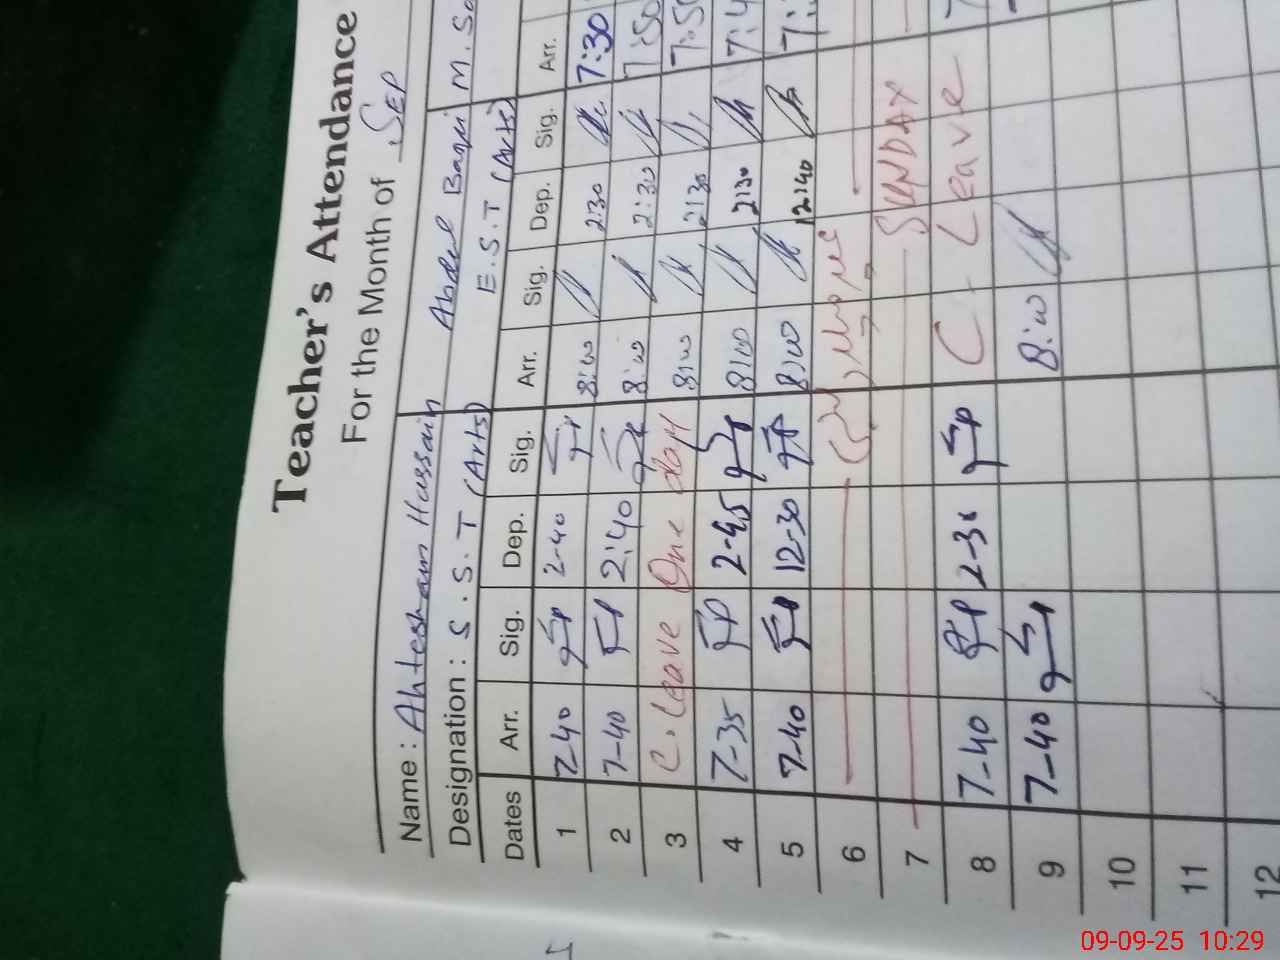 Teacher's Attendance
For the Month of SEP
Name : Ahtesham Hussain Abdul Baqi M. Sa
Designation : S.S.T (Arts) E.S.T (Arts)
Dates Arr. Sig. Dep. Sig. Arr. Sig. Dep. Sig. Arr.
1 7-40 2-40 8:00 2:30 7:30
2 7-40 2:40 8:00 2:30 7:50
3 C. leave One day 8:00 2:30 7:50
4 7-35 2-45 8:00 2:30 7:4
5 7-40 12-30 8:00 12:40 7:
6
7 SUNDAY
8 7-40 2-30 C. Leave
9 7-40 8:00
10
11
12
09-09-25 10:29